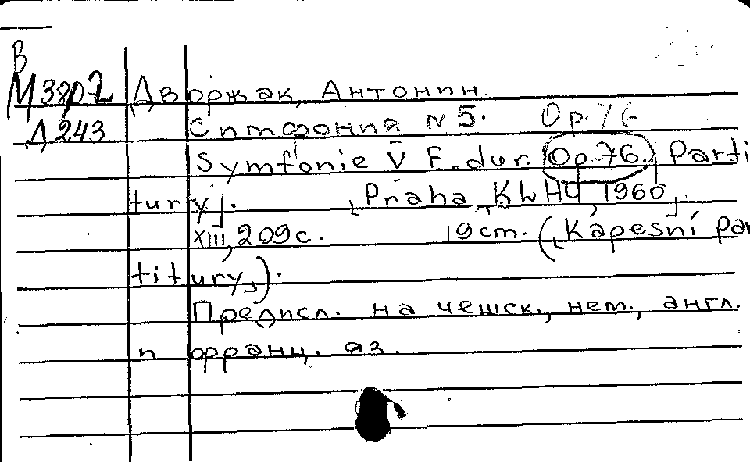 В
М3807 Дворжак, Антонин.
Д243 Симфония № 5. Op. 76
Symfonie V F. dur. Op. 76. Parti
tury].
[Praha, KLHU, 1960].
XIII, 209 с. 19 cm. ([Kapesní Par
titury]).
Предисл. на чешск., нем., англ.
и франц. яз.